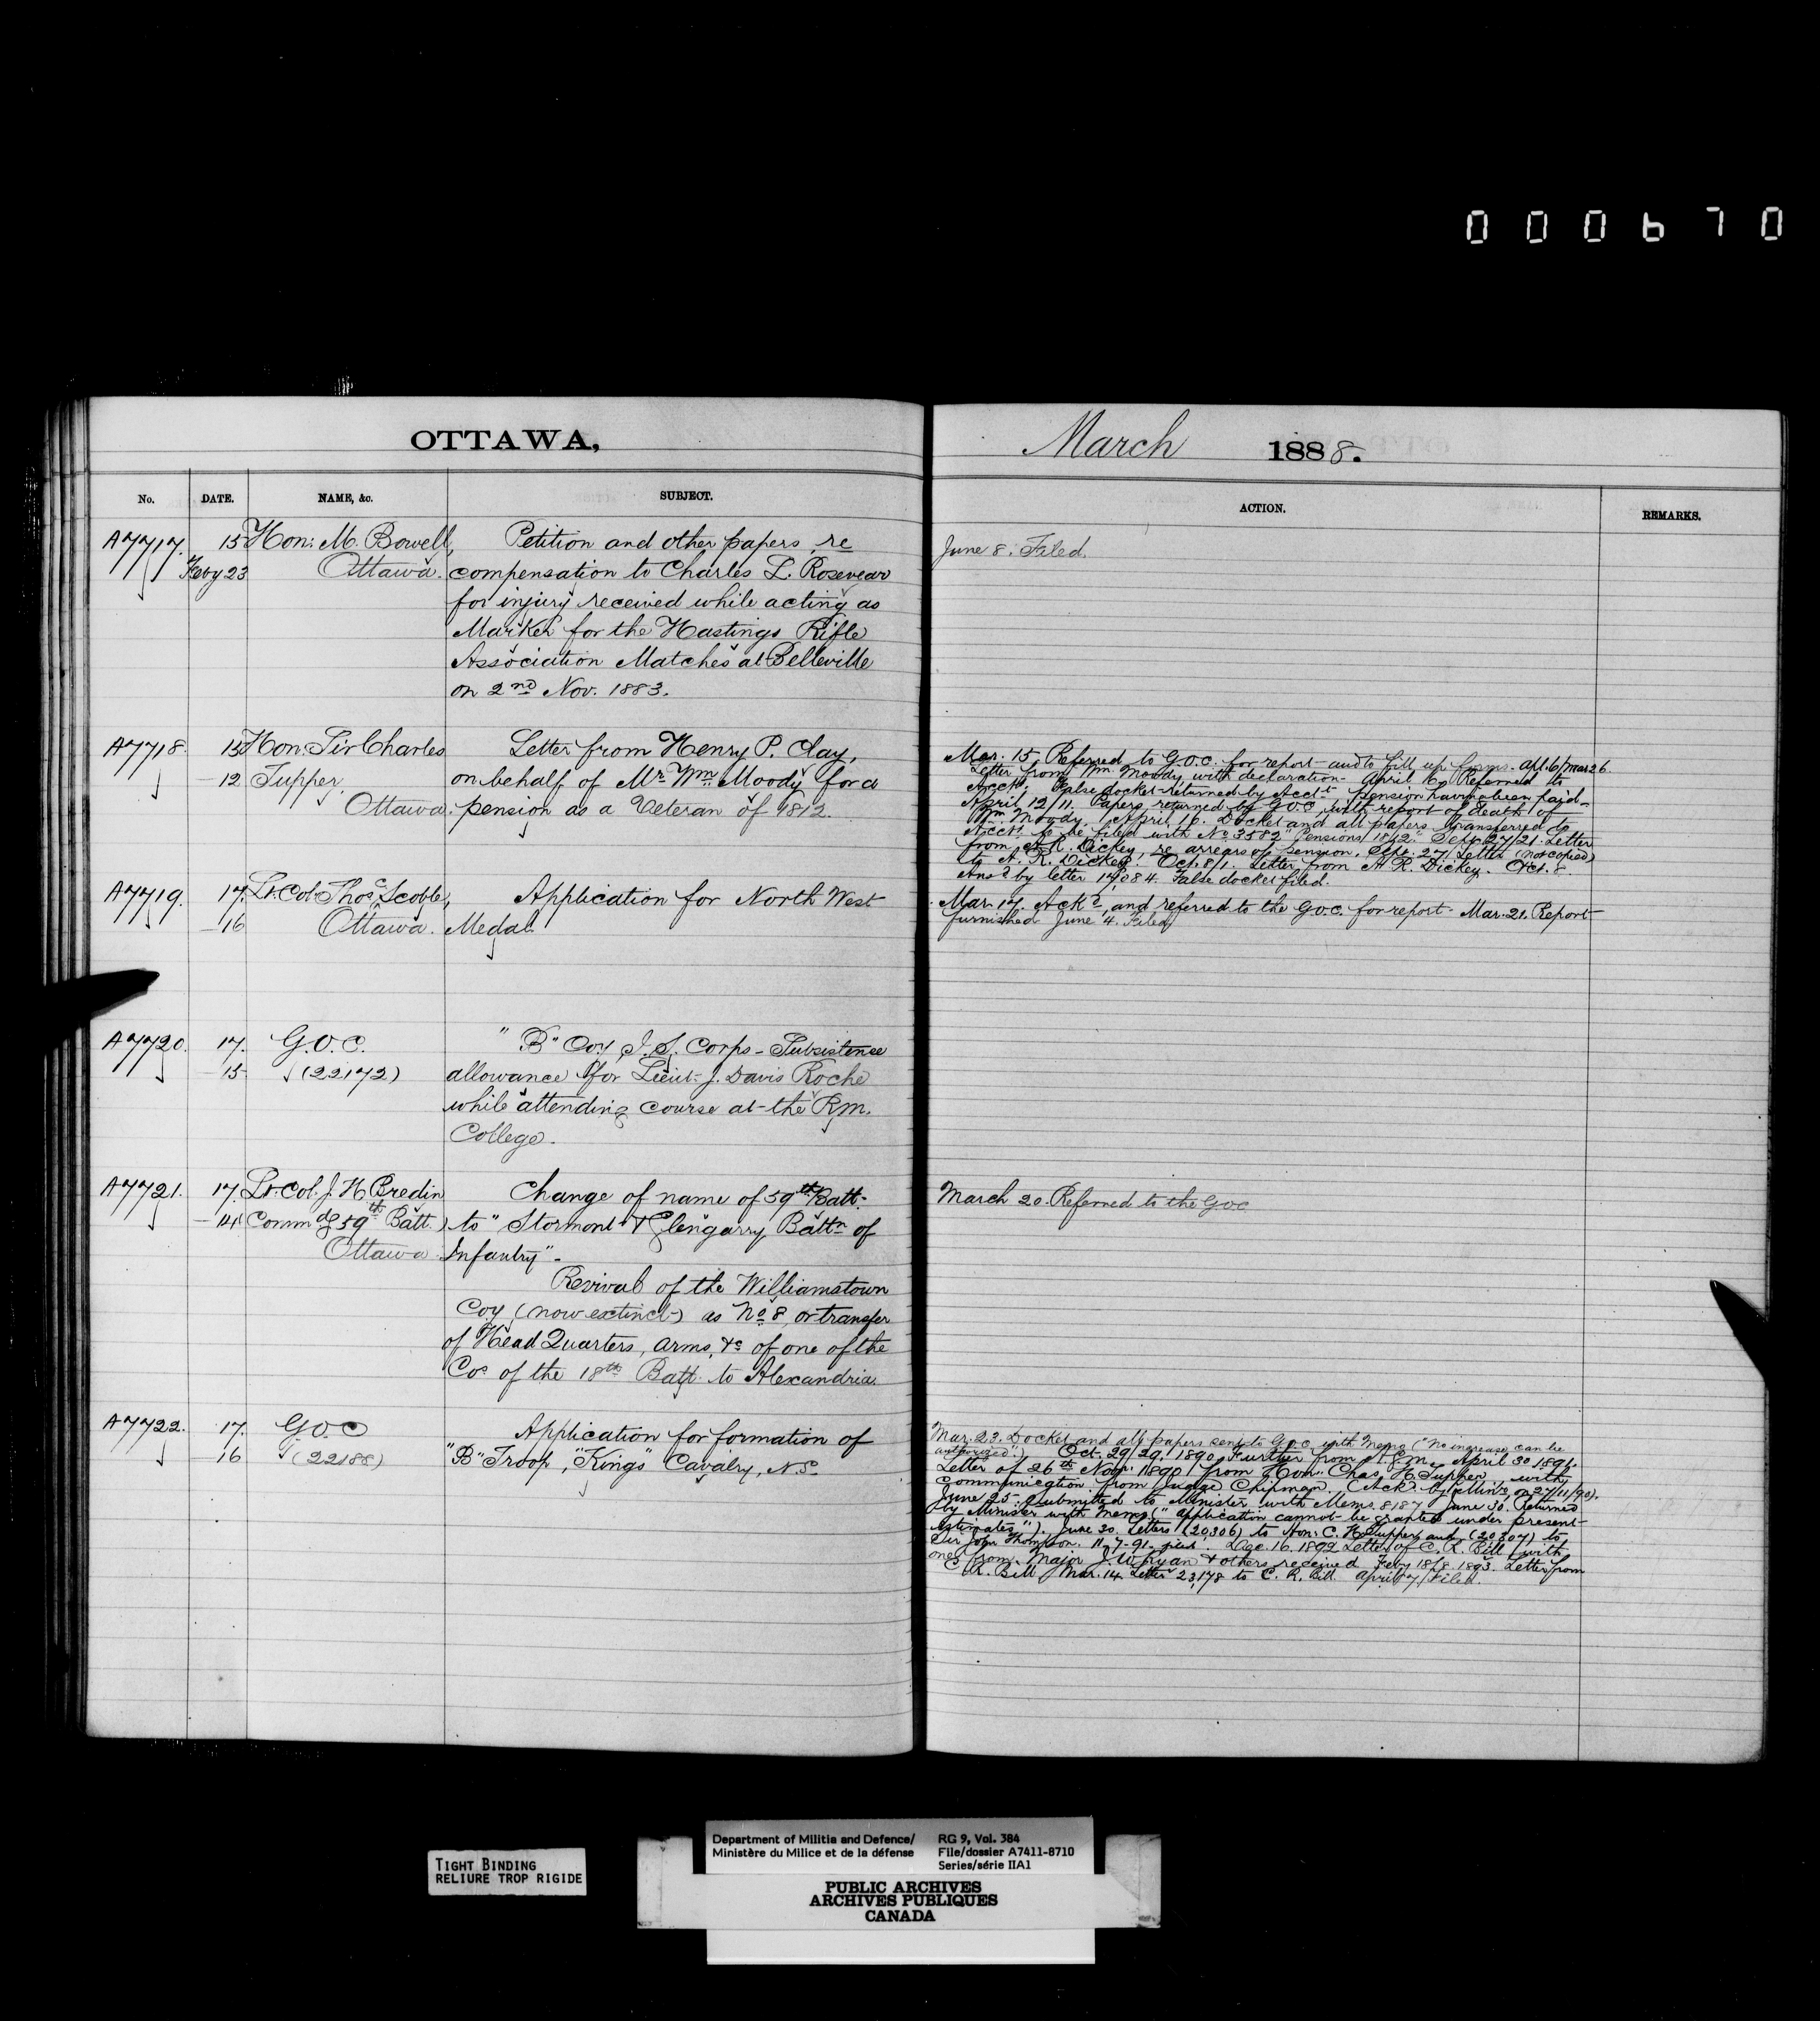 000670
OTTAWA,
March 1888.
No. DATE. NAME, &c. SUBJECT.
ACTION. REMARKS.
A7717. 15 Hon: M. Bowell, Petition and other papers re
Feby 23 Ottawa. compensation to Charles L. Rosevear
for injury received while acting as
Marker for the Hastings Rifle
Association Matches at Belleville
on 2nd Nov. 1883.
June 8. Filed.
A7718. 15 Hon. Sir Charles Letter from Henry P. Clay,
— 12 Tupper, on behalf of Mr Wm Moody for a
Ottawa. pension as a Veteran of 1812.
Mar. 15. Referred to G.O.C. for report and to fill up forms. Apl. 6/Mar 26.
Letter from Wm. Moody, with declaration. April 16, Referred to
Acct. False docket returned by Acct. Pension having been paid—
April 12/11. Papers returned by G.O.C. with report of death of
Wm Moody. April 16. Docket and all papers transferred to
Acct. to be filed with No 3582 "Pensions 1812." Sept. 27/21. Letter
from A. R. Dickey, re arrears of pension. Sept. 27. Letter (not copied)
to A. R. Dickey. Oct. 8/1. Letter from A. R. Dickey. Oct. 8.
Ansd by letter 17084. False docket filed.
A7719. 17. Lt. Col. Thos. C. Scoble, Application for North West
— 16 Ottawa. Medal.
Mar. 17. Ackd, and referred to the G.O.C. for report. Mar. 21. Report
furnished June 4. Filed
A7720. 17. G.O.C. "B" Coy I.S. Corps - Subsistence
— 15 (22172) allowance for Lieut. J. Davis Roche
while attending course at the R.M.
College.
A7721. 17. Lt. Col. J. H. Bredin Change of name of 59th Batt.
— 14 (Commdg 59th Batt.) to "Stormont & Glengarry Battn of
Ottawa. Infantry"—
Revival of the Williamstown
Coy (now extinct) as No 8, or transfer
of Head Quarters, arms, &c of one of the
Cos of the 18th Batt. to Alexandria.
March 20. Referred to the GOC
A7722. 17. G.O.C Application for formation of
— 16 (22188) "B" Troop, "Kings" Cavalry, N.S.
Mar. 23. Docket and all papers sent to G.O.C. with Memo ("No increase can be
authorized") Oct. 29/29. 1890. Further from April 30 1891.
Letter of 26th Novr. 1890 from Hon. Chas. H. Tupper, with
communication from Judge Chipman. (Ackd by Minr. on 27/11/90).
June 25. Submitted to Minister with Memo. 8187 June 30. Returned
by Minister with memo ("application cannot be granted under present
estimates"). June 30. Letters (20,306) to Hon: C. H. Tupper and (20307) to
Sir John Thompson. 11-7-91. filed. Dec. 16. 1892 Letter of C. R. Bill, with
one from Major J. W. Ryan & others received Feby 18/8 1893. Letter from
C. R. Bill Mar. 14. Letter 23,178 to C. R. Bill. April 7/ Filed.
TIGHT BINDING
RELIURE TROP RIGIDE
Department of Militia and Defence/ RG 9, Vol. 384
Ministère du Milice et de la défense File/dossier A7411-8710
Series/série IIA1
PUBLIC ARCHIVES
ARCHIVES PUBLIQUES
CANADA